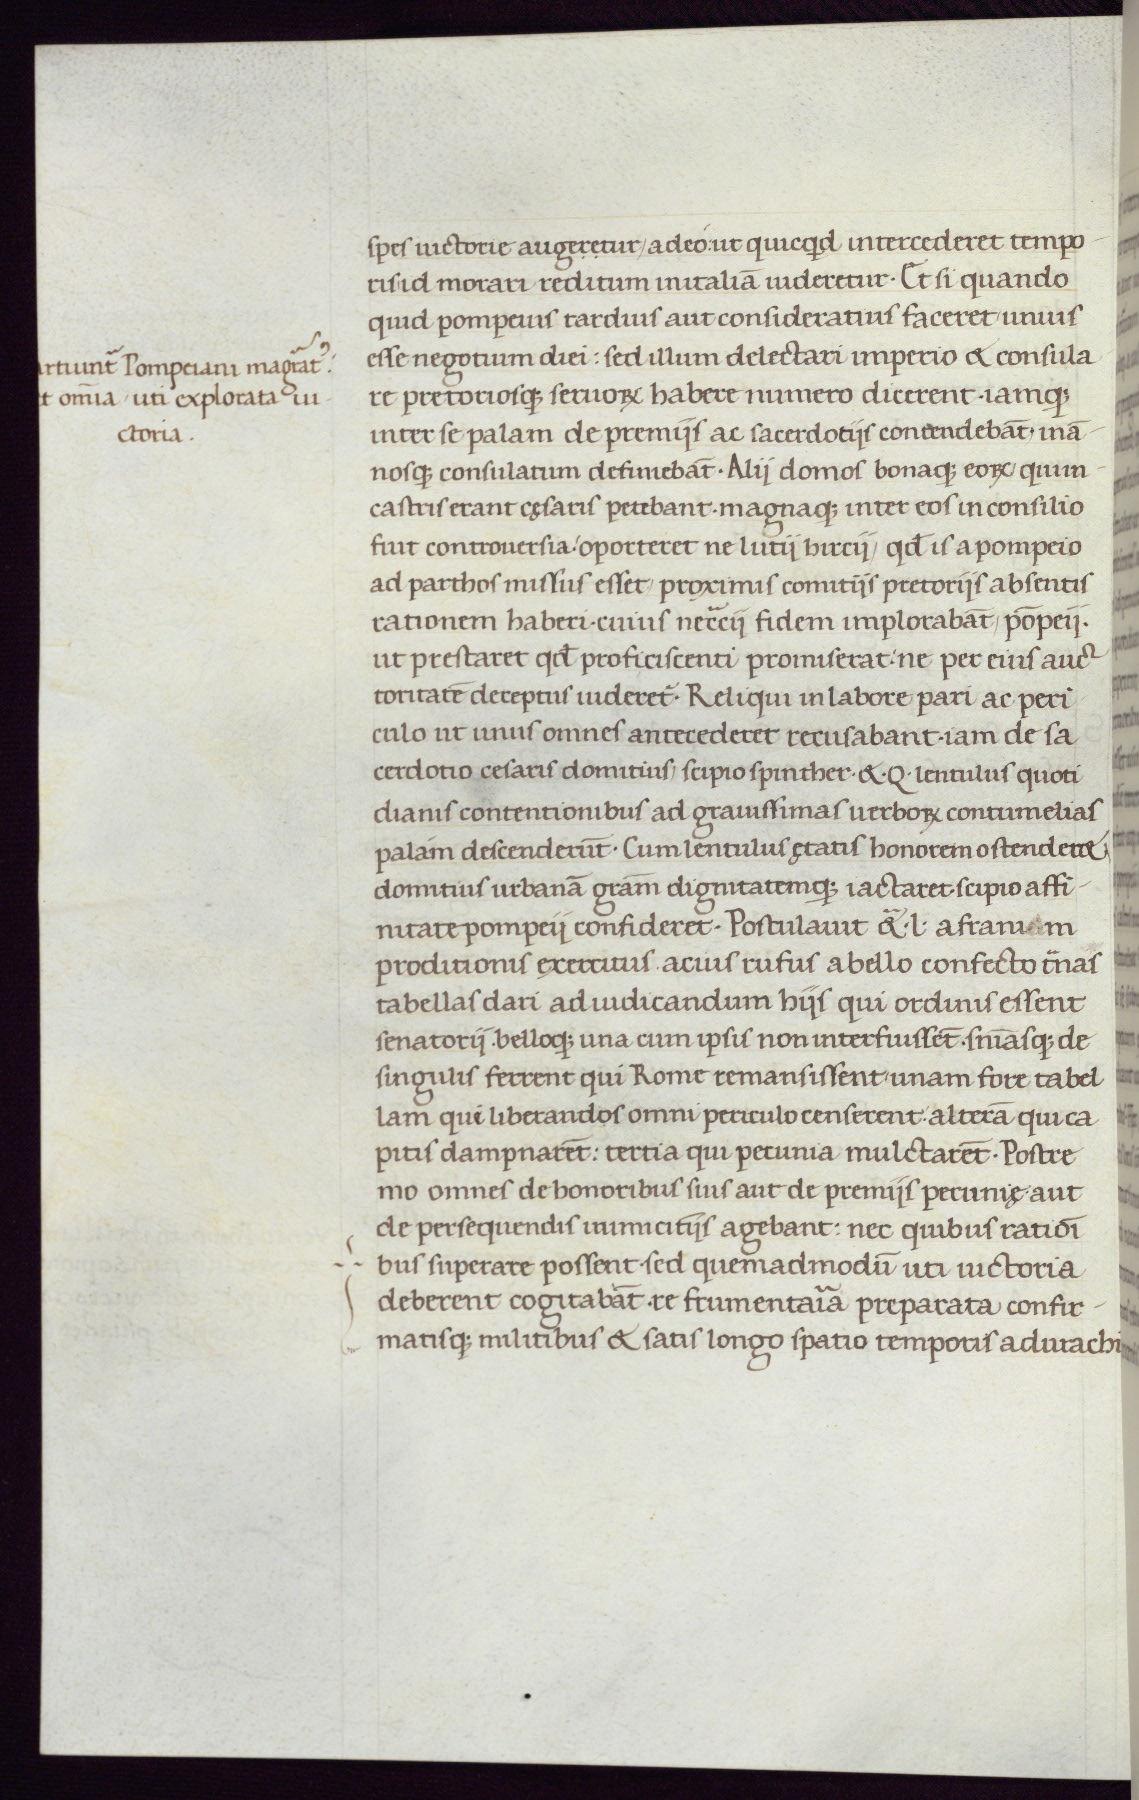 artiunt̃ Pompeiani magr̃atꝰ:
et om̄ia / uti explorata ui-
ctoria.
spes uictorie augeretur / adeo: ut quicq̣d intercederet tempo-
ris id morari reditum in italiā uideretur. Et si quando
quid pompeius tardius aut consideratius faceret / unius
esse negotium diei: sed illum delectari imperio & consula
re pretoriosqꝫ seruoꝝ habere numero dicerent. iamqꝫ
inter se palam de premijs ac sacerdotijs contendebāt. in ā-
nosqꝫ consulatum definiebāt. Alij domos bonaqꝫ eoꝝ / qui in
castris erant cęsaris petebant. magnaqꝫ inter eos in consilio
fuit controuersia: oporteret ne lutij hircij / qd̄ is a pompeio
ad parthos missus esset / proximis comitijs pretorijs absentis
rationem haberi. cuius nec̃cij fidem implorabāt / pōpeij.
ut prestaret qd̄ proficiscenti promiserat: ne per eius auc
toritatē deceptus uideret̃. Reliqui in labore pari ac peri
culo ut unus omnes antecederet recusabant. iam de sa
cerdotio cesaris domitius / scipio spinther. &. Q. lentulus quoti
dianis contentionibus ad grauissimas uerboꝝ contumelias
palam descenderūt. Cum lentulus ętatis honorem ostenderet
domitius urbanā grām dignitatemqꝫ iactaret. scipio affi-
nitate pompeij confideret. Postulauit &̃. l. afranium
proditionis exercitus. acuis rufus a bello confecto t̃nas
tabellas dari ad iudicandum hijs qui ordinis essent
senatorij. belloqꝫ una cum ipsis non interfuissēt. sn̄iasqꝫ de
singulis ferrent qui Rome remansissent / unam fore tabel
lam qui liberandos omni periculo censerent. alterā qui ca
pitis dampnarēt: tertia qui pecunia mulctarēt. Postre
mo omnes de honoribus suis aut de premijs pecunię aut
de persequendis inimicitijs agebant: nec quibus ratiōi
bus superare possent. sed quemadmodū uti uictoria
deberent cogitabāt. re frumentar̄ia preparata confir-
matisqꝫ militibus & satis longo spatio temporis a dirachi